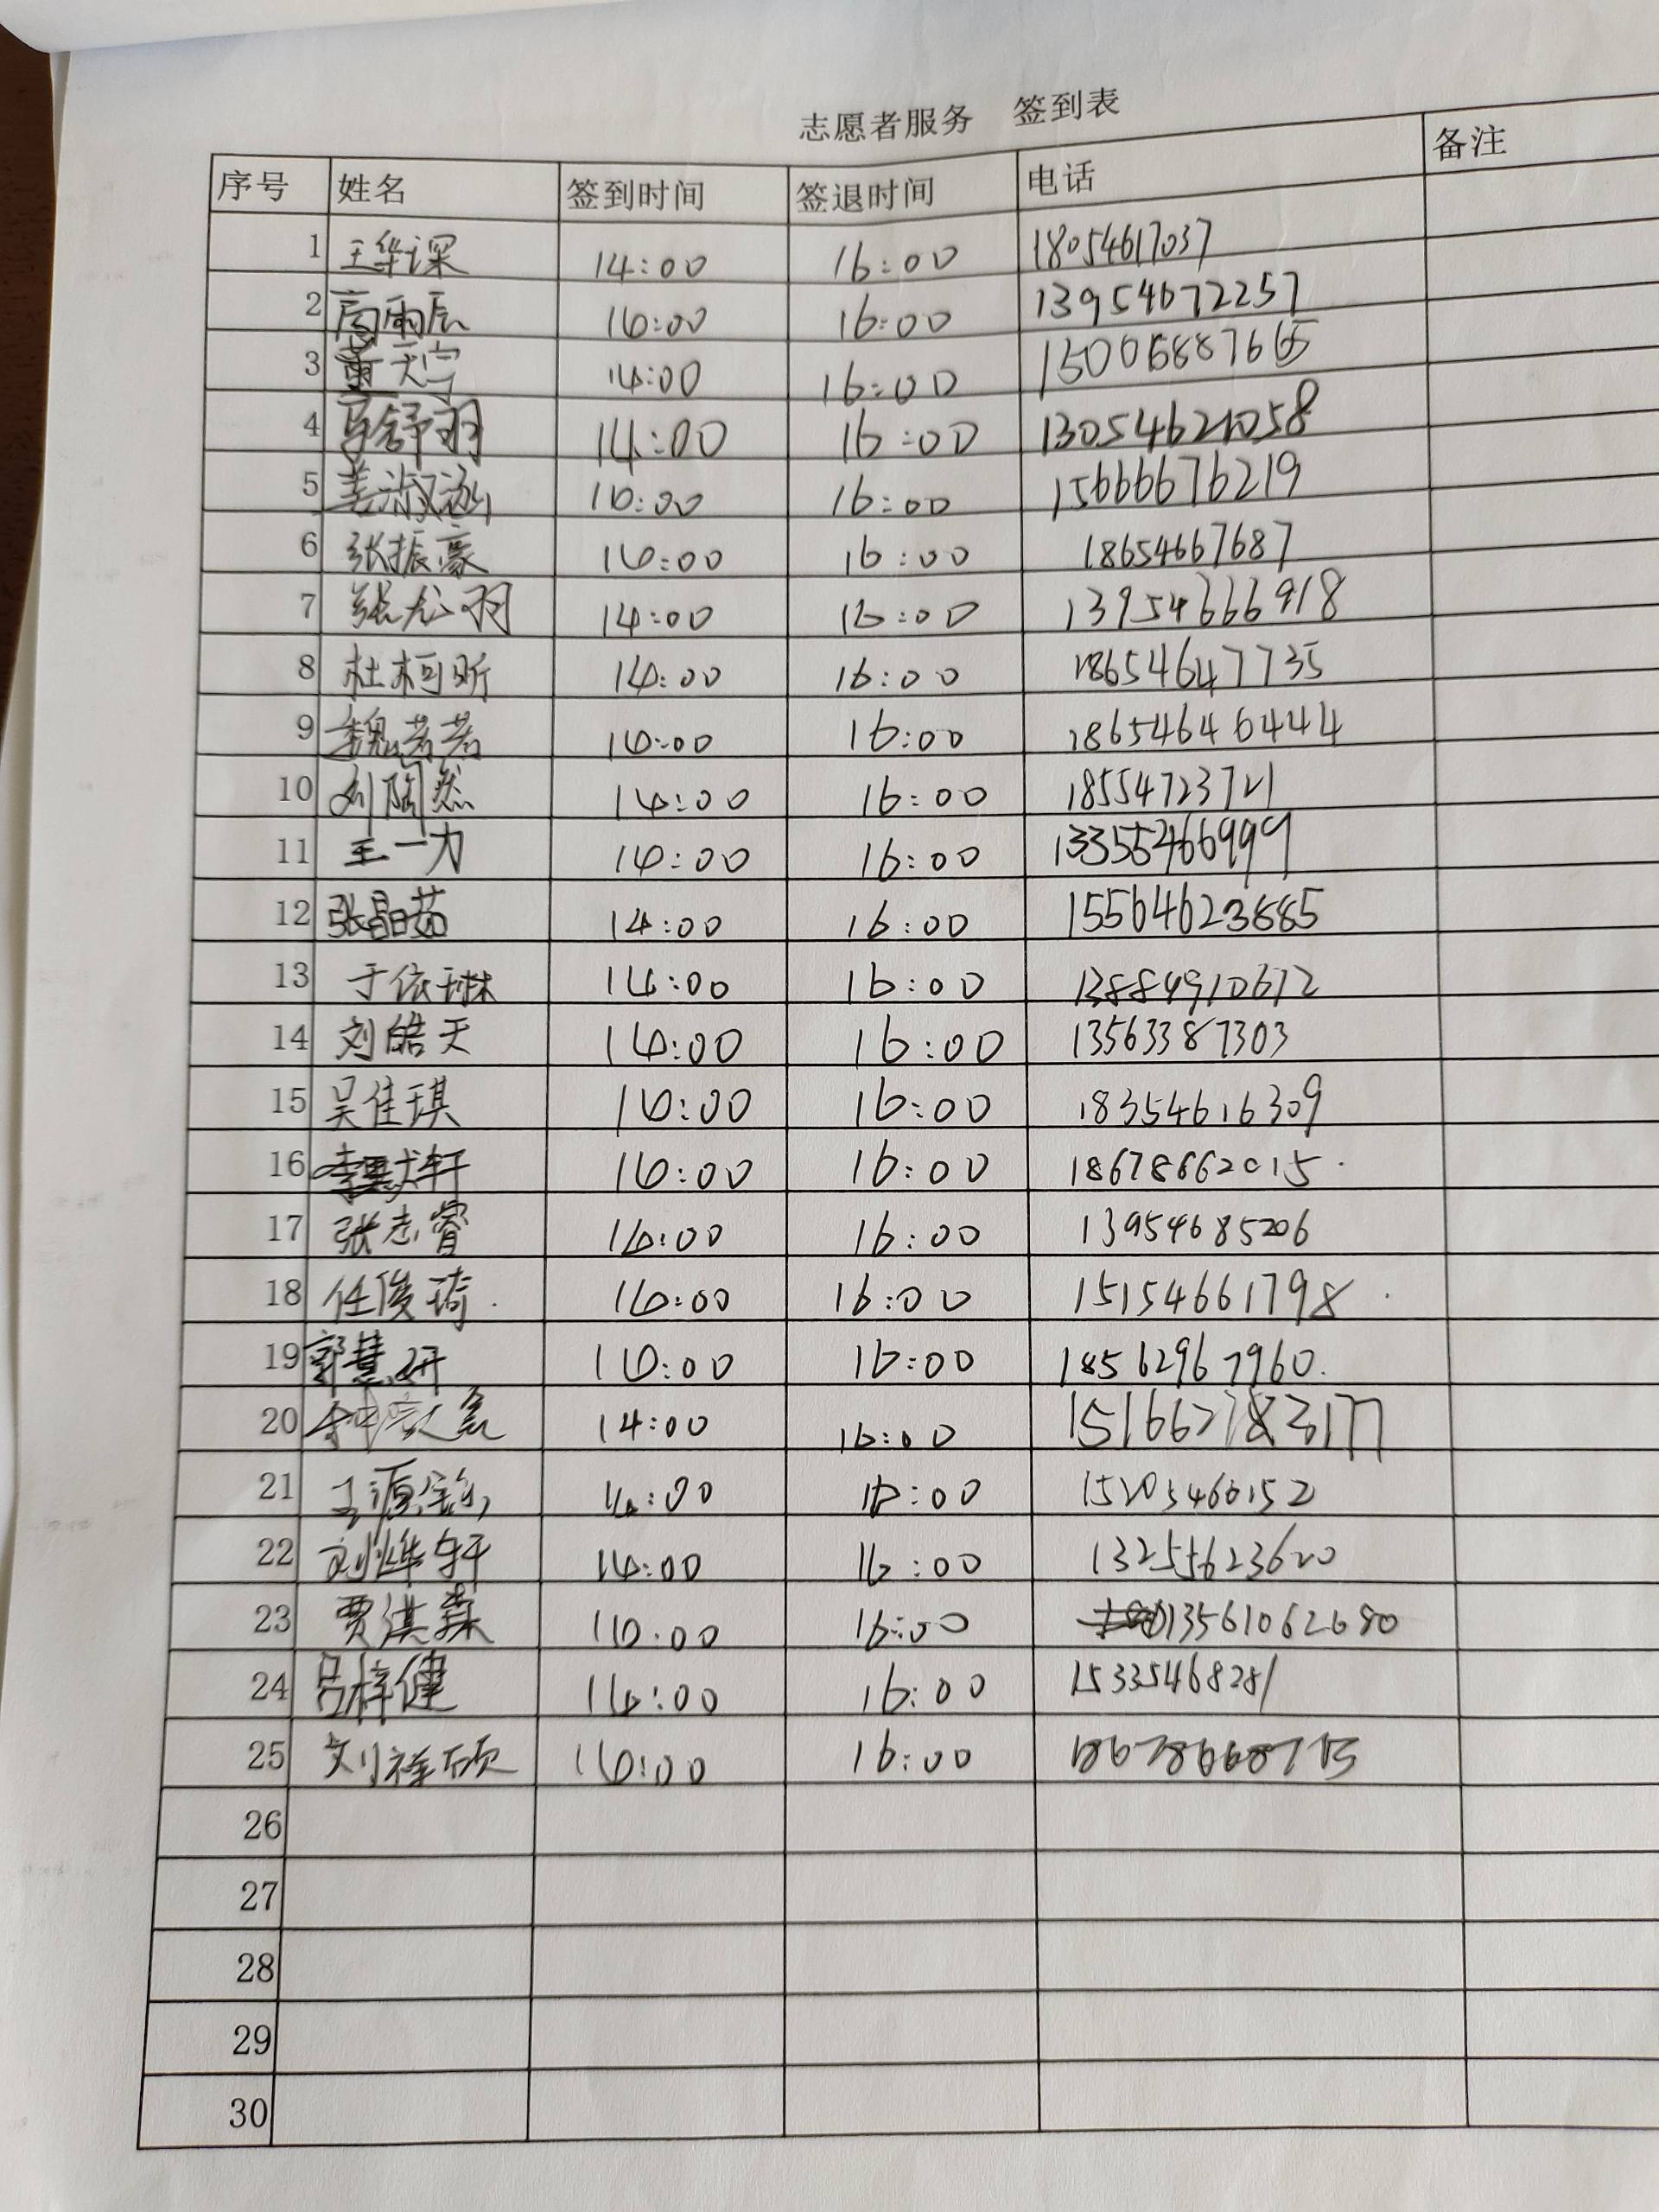 志愿者服务 签到表
序号 姓名 签到时间 签退时间 电话 备注
1 王华深 14:00 16:00 18054617037
2 高雨辰 14:00 16:00 13954672257
3 董天宁 14:00 16:00
4 舒羽 14:00 16:00 13054621058
5 姜淑涵 14:00 16:00 15666676219
6 张振豪 14:00 16:00 18654667687
7 张尤羽 14:00 16:00 13954666918
8 杜柯昕 14:00 16:00 18654647735
9 魏若若 14:00 16:00 18654646444
10 刘陶然 14:00 16:00 18554723721
11 王一力 14:00 16:00
12 张晶茹 14:00 16:00 15564623885
13 于依琳 14:00 16:00 13884910672
14 刘皓天 14:00 16:00 13563387303
15 吴佳琪 14:00 16:00 18354616309
16 轩 14:00 16:00 18678662015
17 张志睿 14:00 16:00 13954685206
18 任俊琦 14:00 16:00 15154661798
19 郭慧妍 14:00 16:00 18562967960
20 14:00 16:00
21 14:00 16:00 15205460152
22 刘烨轩 14:00 16:00 13255623620
23 贾淇森 14:00 16:00 13561062680
24 吕梓健 14:00 16:00 15335468281
25 刘祥硕 14:00 16:00
26
27
28
29
30